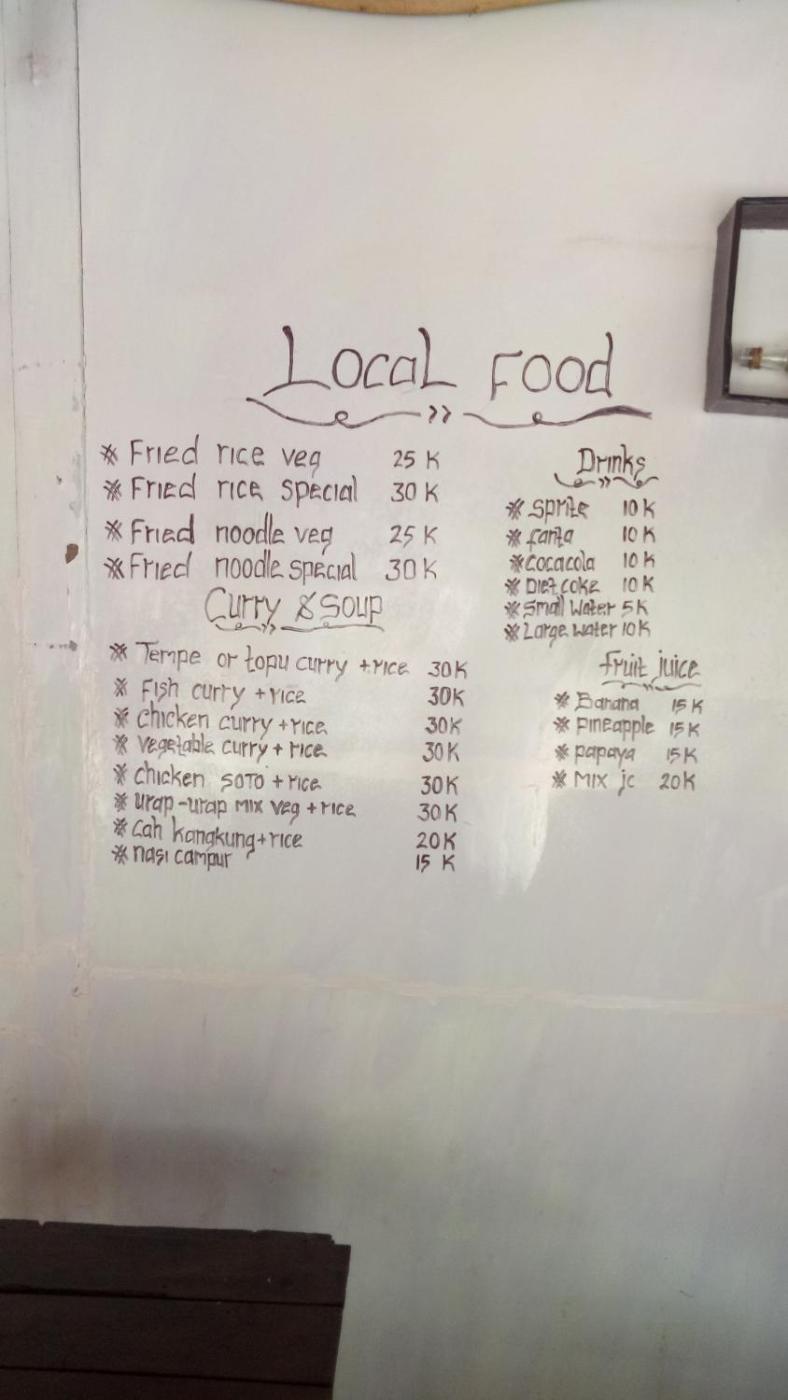 Local Food
※ Fried rice veg 25 K
※ Fried rice special 30 K
※ Fried noodle veg 25 K
※ Fried noodle special 30 K
Curry & Soup
※ Tempe or topu curry + rice 30 K
※ Fish curry + rice 30K
※ chicken curry + rice 30K
※ vegetable curry + rice 30 K
※ chicken SOTO + rice 30 K
※ urap-urap mix veg + rice 30 K
※ cah kangkung + rice 20 K
※ nasi campur 15 K
Drinks
※ sprite 10 K
※ fanta 10 K
※ cocacola 10 K
※ Diet coke 10 K
※ small water 5 K
※ Large water 10 K
fruit juice
※ Banana 15 K
※ pineapple 15 K
※ papaya 15 K
※ Mix jc 20 K